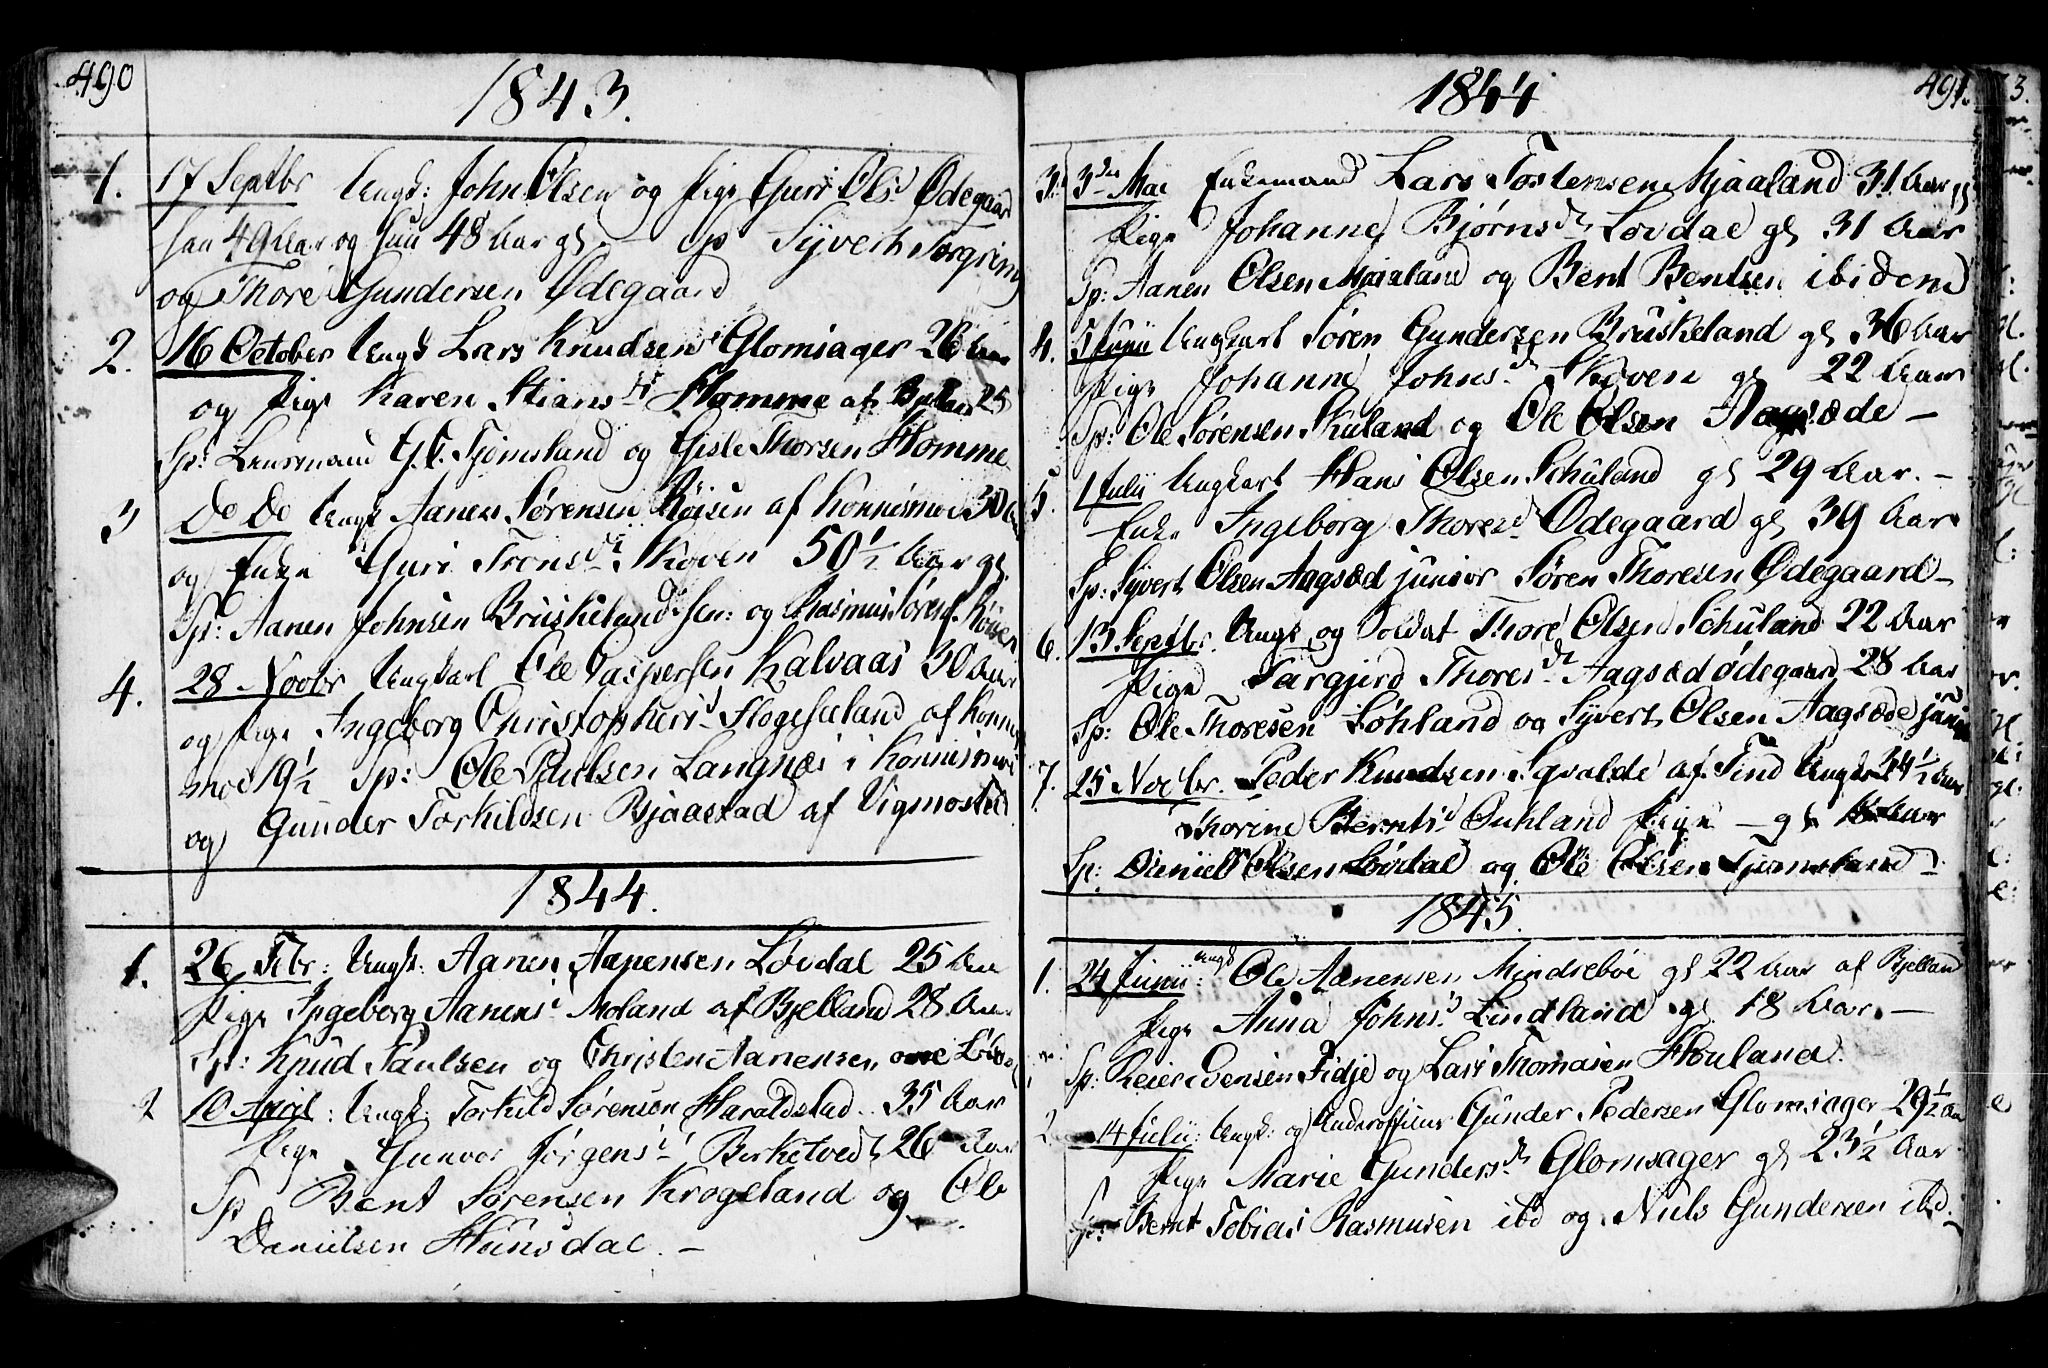 490
1843.
1. 17 Septbr Ungk: John Olsen og Pige Guri Olsd Ødegaard
han 49 Aar og hun 48 Aar gl. – Sp Syvert Torgrims
og Thore Gundersen Ødegaard
2. 16 October Ungk Lars Knudsen Glomsager 26 Aar
og Pige Karen Stiansdt Homme af Bjelland 25
Sp: Lensmand Tjomsland og Gisle Thorsen Homme
3 do do Ungk Aanen Sørensen Röisen af Konnismoe 30
og Enke Guri Tronsdt Skoven 50½ Aar gl.
Sp: Aanen Johnsen Bruskeland sen: og Rasmus Sørens. Röisen
4. 28 Novbr Ungkarl Ole Caspersen Kalvaas 30 Aar
og Pige Ingeborg Christophersd Flogeheeland af Konnis
moe 19½ Sp: Ole Paulsen Langnæs i Konnismoe
og Gunder Torkildsen Bjaastad af Vigmosted
1844.
1. 26 Febr: Ungk: Aanen Aanensen Lövdal 25 Aar
Pige Ingeborg Aanensd Moland af Bjelland 28 Aar
Sp: Knud Paulsen og Christen Aanensen Lövdal
2 10 April: Ungk: Torkild Sørensen Haraldstad 35 Aar
Pige Gunvor Jørgensd Birketvedt 26 Aar
Sp Bent Sørensen Krogeland og Ole
Danielsen Hunsdal. –
1844
491.
3. 3die Mai Enkemand Lars Tostensen Mjaaland 31 Aar gl
Pige Johanne Bjørnsdt Lövdal gl 31 Aar
Sp: Aanen Olsen Mjaaland og Bent Bentsen ibidem
4. 5 Junii Ungkarl Søren Gundersen Bruskeland gl 36 Aar
Pige Johanne Johnsdt Skoven gl 22 Aar
Sp: Ole Sørensen Skuland og Ole Olsen Aagsæde –
5. 1 Julii Ungkarl Hans Olsen Schuland gl 29 Aar. –
Enke Ingeborg Thoresd Ødegaard gl 39 Aar
Sp: Syvert Olsen Aagsæd junior Søren Thoresen Ødegaard –
6. 13 Septbr. Ungk og Soldat Thore Olsen Schuland 22 Aar
Pige Targjerd Thoresdt Aagsæd Ødegaard 28 Aar
Sp: Ole Thoresen Löhland og Syvert Olsen Aagsæde junior
7. 25 Novbr. Peder Knudsen Sgvalde af Tind Ungk 34½ Aar
Thorine Berntsd Ouhland Pige – gl Aar
Sp: Daniel Olsen Lövdal og Ole Olsen Tjomsland –
1845.
1. 24 Junii: Ungk Ole Aanensen Mindrebøe gl 22 Aar af Bjelland
Pige Anna Johnsd Lindland gl 18 Aar. –
Sp: Reier Svensen Fidje og Lars Thomasen Houland.
2. 14 Julii: Ungk: og Underofficer Gunder Pedersen Glomsager 29½ Aar
Pige Marie Gundersdt Glomsager gl 23½ Aar
Sp: Bernt Tobias Rasmusen ibd og Niels Gundersen ibd.